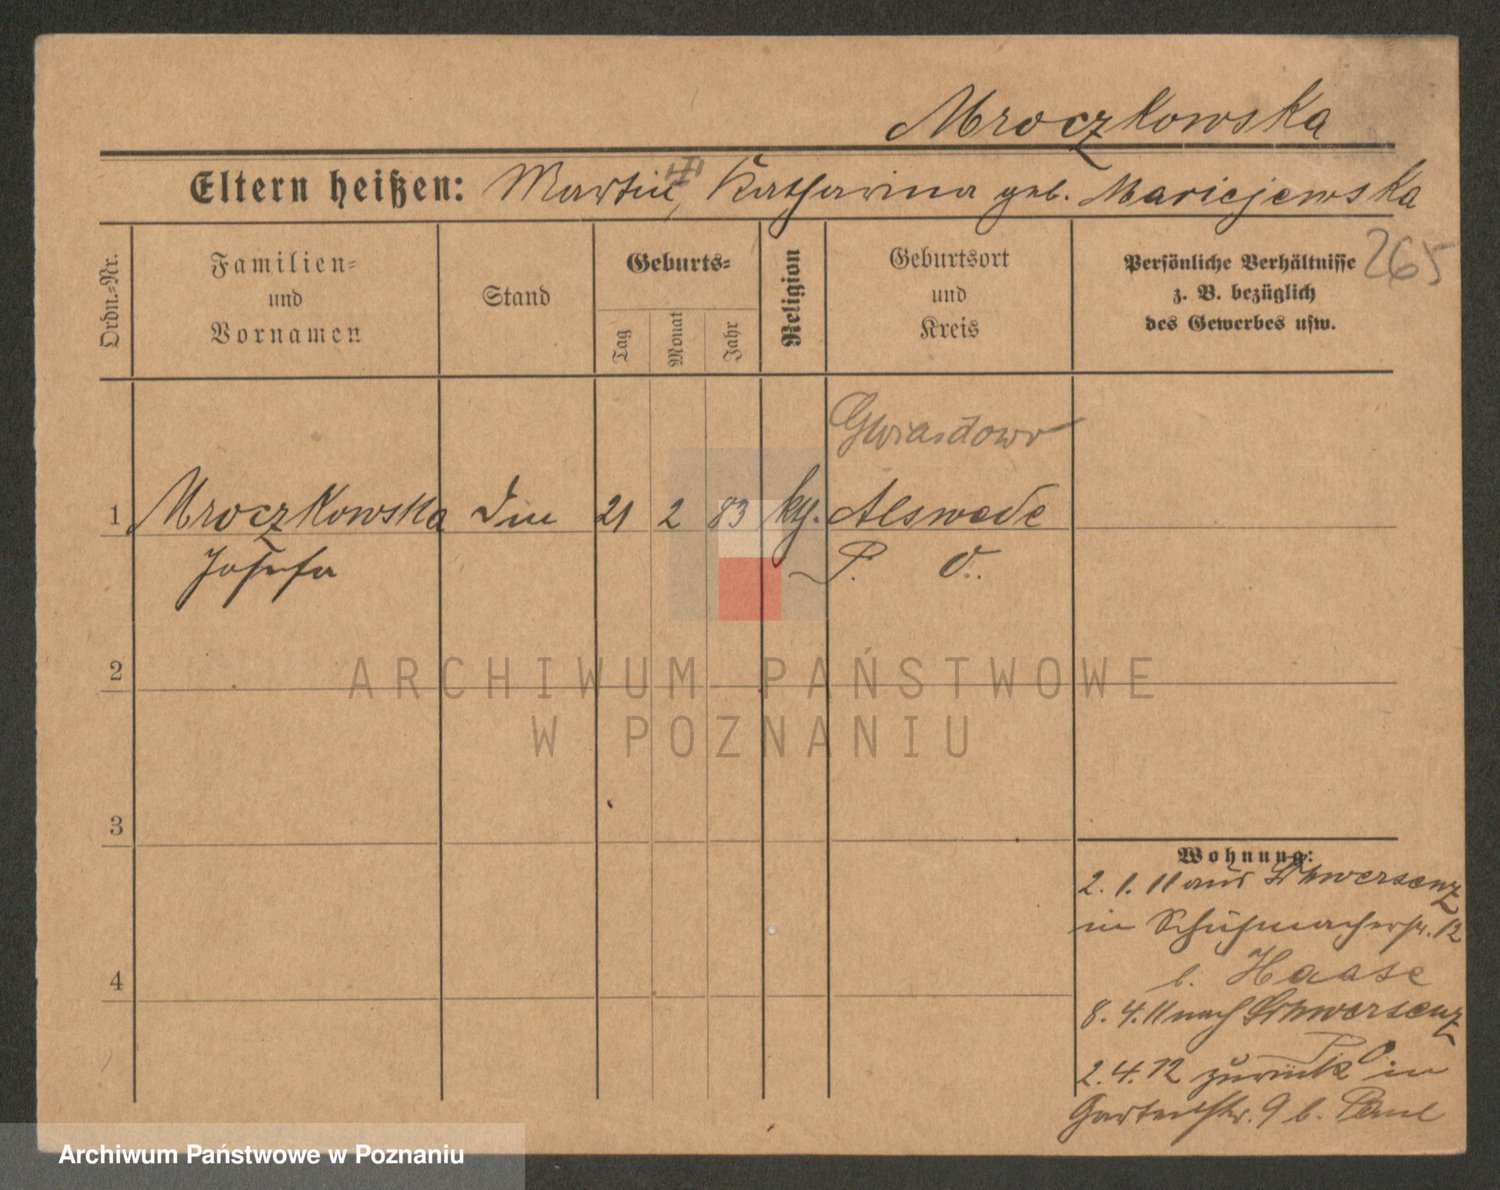 Mroczkowska
Eltern heißen: Martin, Katharina geb. Maciejewska
265
Ordn.-Nr.
Familien-
und
Vornamen
Stand
Geburts-
Tag
Monat
Jahr
Religion
Geburtsort
und
Kreis
Persönliche Verhältnisse
z. B. bezüglich
des Gewerbes usw.
Gwiazdowo
1 Mroczkowska 21 2 83 Alswede
Josefa P. O.
2
3
4
Wohnung:
2. 1. 11 aus Schwersenz
in Schuhmacherstr. 12
b. Haase
8. 4. 11 nach Schwersenz
P O
2. 4. 12 zurück in
Gartenstr. 9 b. Paul
ARCHIWUM PAŃSTWOWE
W POZNANIU
Archiwum Państwowe w Poznaniu